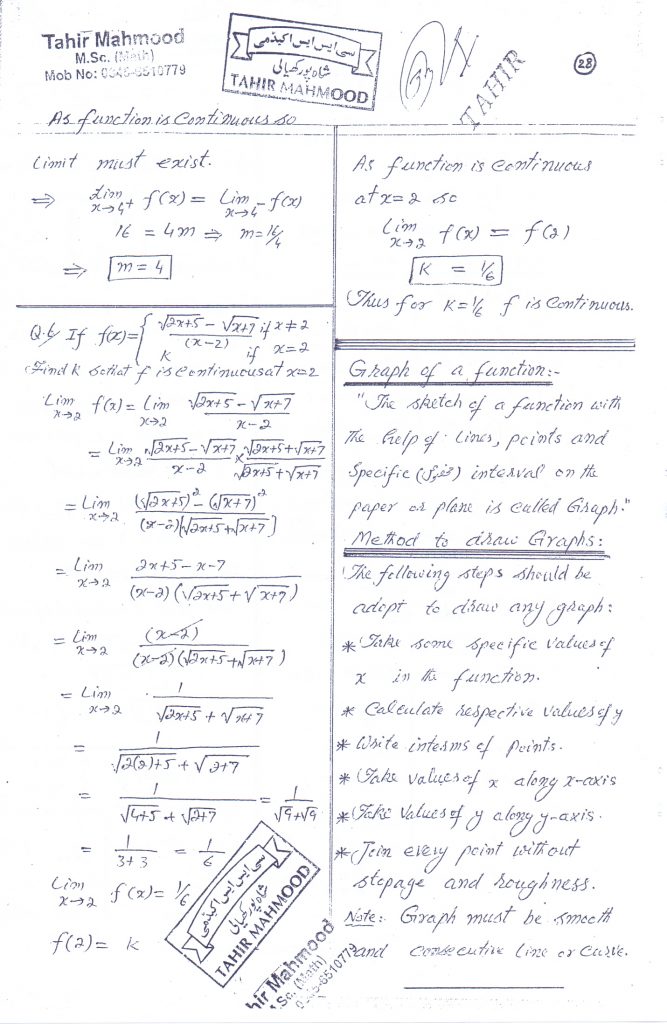 Tahir Mahmood
M.Sc. (Math)
Mob No: 0345-6510779
سی ایس ایس اکیڈمی
شاہ پور کھیالی
TAHIR MAHMOOD
TAHIR
28
As function is Continuous so
Limit must exist.
⇒ Lim x→4+ f(x) = Lim x→4- f(x)
16 = 4m ⇒ m = 16/4
⇒ m = 4
Q.6 If f(x) = { (√2x+5 - √x+7)/(x-2) if x ≠ 2
K if x = 2
Find k so that f is continuous at x=2
Lim x→2 f(x) = Lim x→2 (√2x+5 - √x+7)/(x-2)
= Lim x→2 (√2x+5 - √x+7)/(x-2) × (√2x+5 + √x+7)/(√2x+5 + √x+7)
= Lim x→2 ((√2x+5)² - (√x+7)²)/((x-2)(√2x+5 + √x+7))
= Lim x→2 (2x+5-x-7)/((x-2)(√2x+5 + √x+7))
= Lim x→2 (x-2)/((x-2)(√2x+5 + √x+7))
= Lim x→2 1/(√2x+5 + √x+7)
= 1/(√2(2)+5 + √2+7)
= 1/(√4+5 + √2+7) = 1/(√9+√9)
= 1/(3+3) = 1/6
Lim x→2 f(x) = 1/6
f(2) = K
As function is continuous
at x=2 so
Lim x→2 f(x) = f(2)
K = 1/6
Thus for K=1/6 f is Continuous.
Graph of a function:-
"The sketch of a function with
the help of lines, points and
Specific (مخصوص) interval on the
paper or plane is called Graph."
Method to draw Graphs:
The following steps should be
adopt to draw any graph:
* Take some specific values of
x in the function.
* Calculate respective values of y
* Write interms of Points.
* Take values of x along x-axis
* Take Values of y along y-axis.
* Join every point without
stopage and roughness.
Note: Graph must be smooth
and consecutive line or curve.
سی ایس ایس اکیڈمی
شاہ پور کھیالی
TAHIR MAHMOOD
hir Mahmood
.Sc. (Math)
0345-6510779